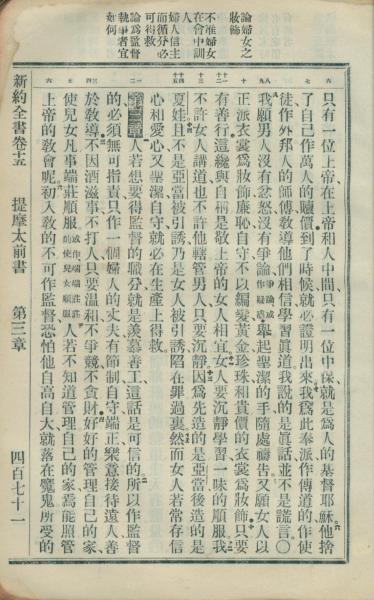 論婦女之
妝飾
不准婦女
在會中訓
人
婦人信主
而循分必
可得救
論爲監督
執事者宜
如何
只有一位上帝在上帝和人中間只有一位中保就是爲人的基督耶穌他捨
了自己作萬人的贖價到了時候就必證明出來我爲此奉派作傳道的作使
徒作外邦人的師傅敎導他們相信學習眞道我說的是眞話並不是謊言〇
我願男人沒有忿怒沒有爭論爭論或作疑惑舉起聖潔的手隨處禱告又願女人以
正派衣裳爲妝飾廉恥自守不以編髮黃金珍珠和貴價的衣裳爲妝飾只要
有善行這纔與自稱是敬上帝的女人相宜女人要沉靜學習一味的順服我
不許女人講道也不許他轄管男人只要沉靜因爲先造的是亞當後造的是
夏娃且不是亞當被引誘乃是女人被引誘陷在罪過裏然而女人若常存信
心相愛心又聖潔自守就必在生產上得救
第三章人若想要得監督的職分就是羨慕善工這話是可信的所以作監督
的必須無可指責只作一個婦人的丈夫有節制自守端正樂意接待遠人善
於敎導不因酒滋事不打人只要溫和不爭競不貪財好好的管理自己的家
使兒女凡事端莊順服或作端端莊莊的使兒女順服人若不知道管理自己的家焉能照管
上帝的敎會呢初入敎的不可作監督恐怕他自高自大就落在魔鬼所受的
新約全書卷十五　提摩太前書　第三章　四百七十一